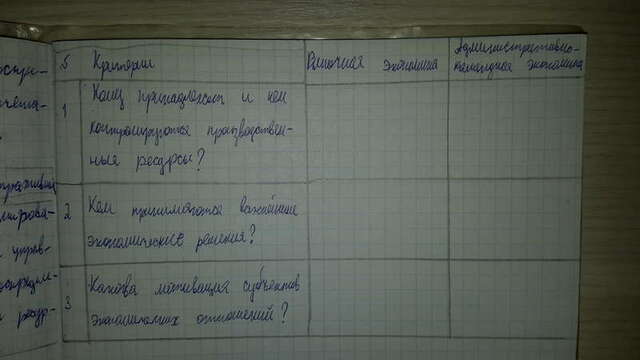 S Критерии Рыночная экономика Административно-
командная экономика
1 Кому принадлежат и кем
контролируются производствен-
ные ресурсы?
2 Кем принимаются важнейшие
экономические решения?
3 Какова мотивация субъектов
экономических отношений?